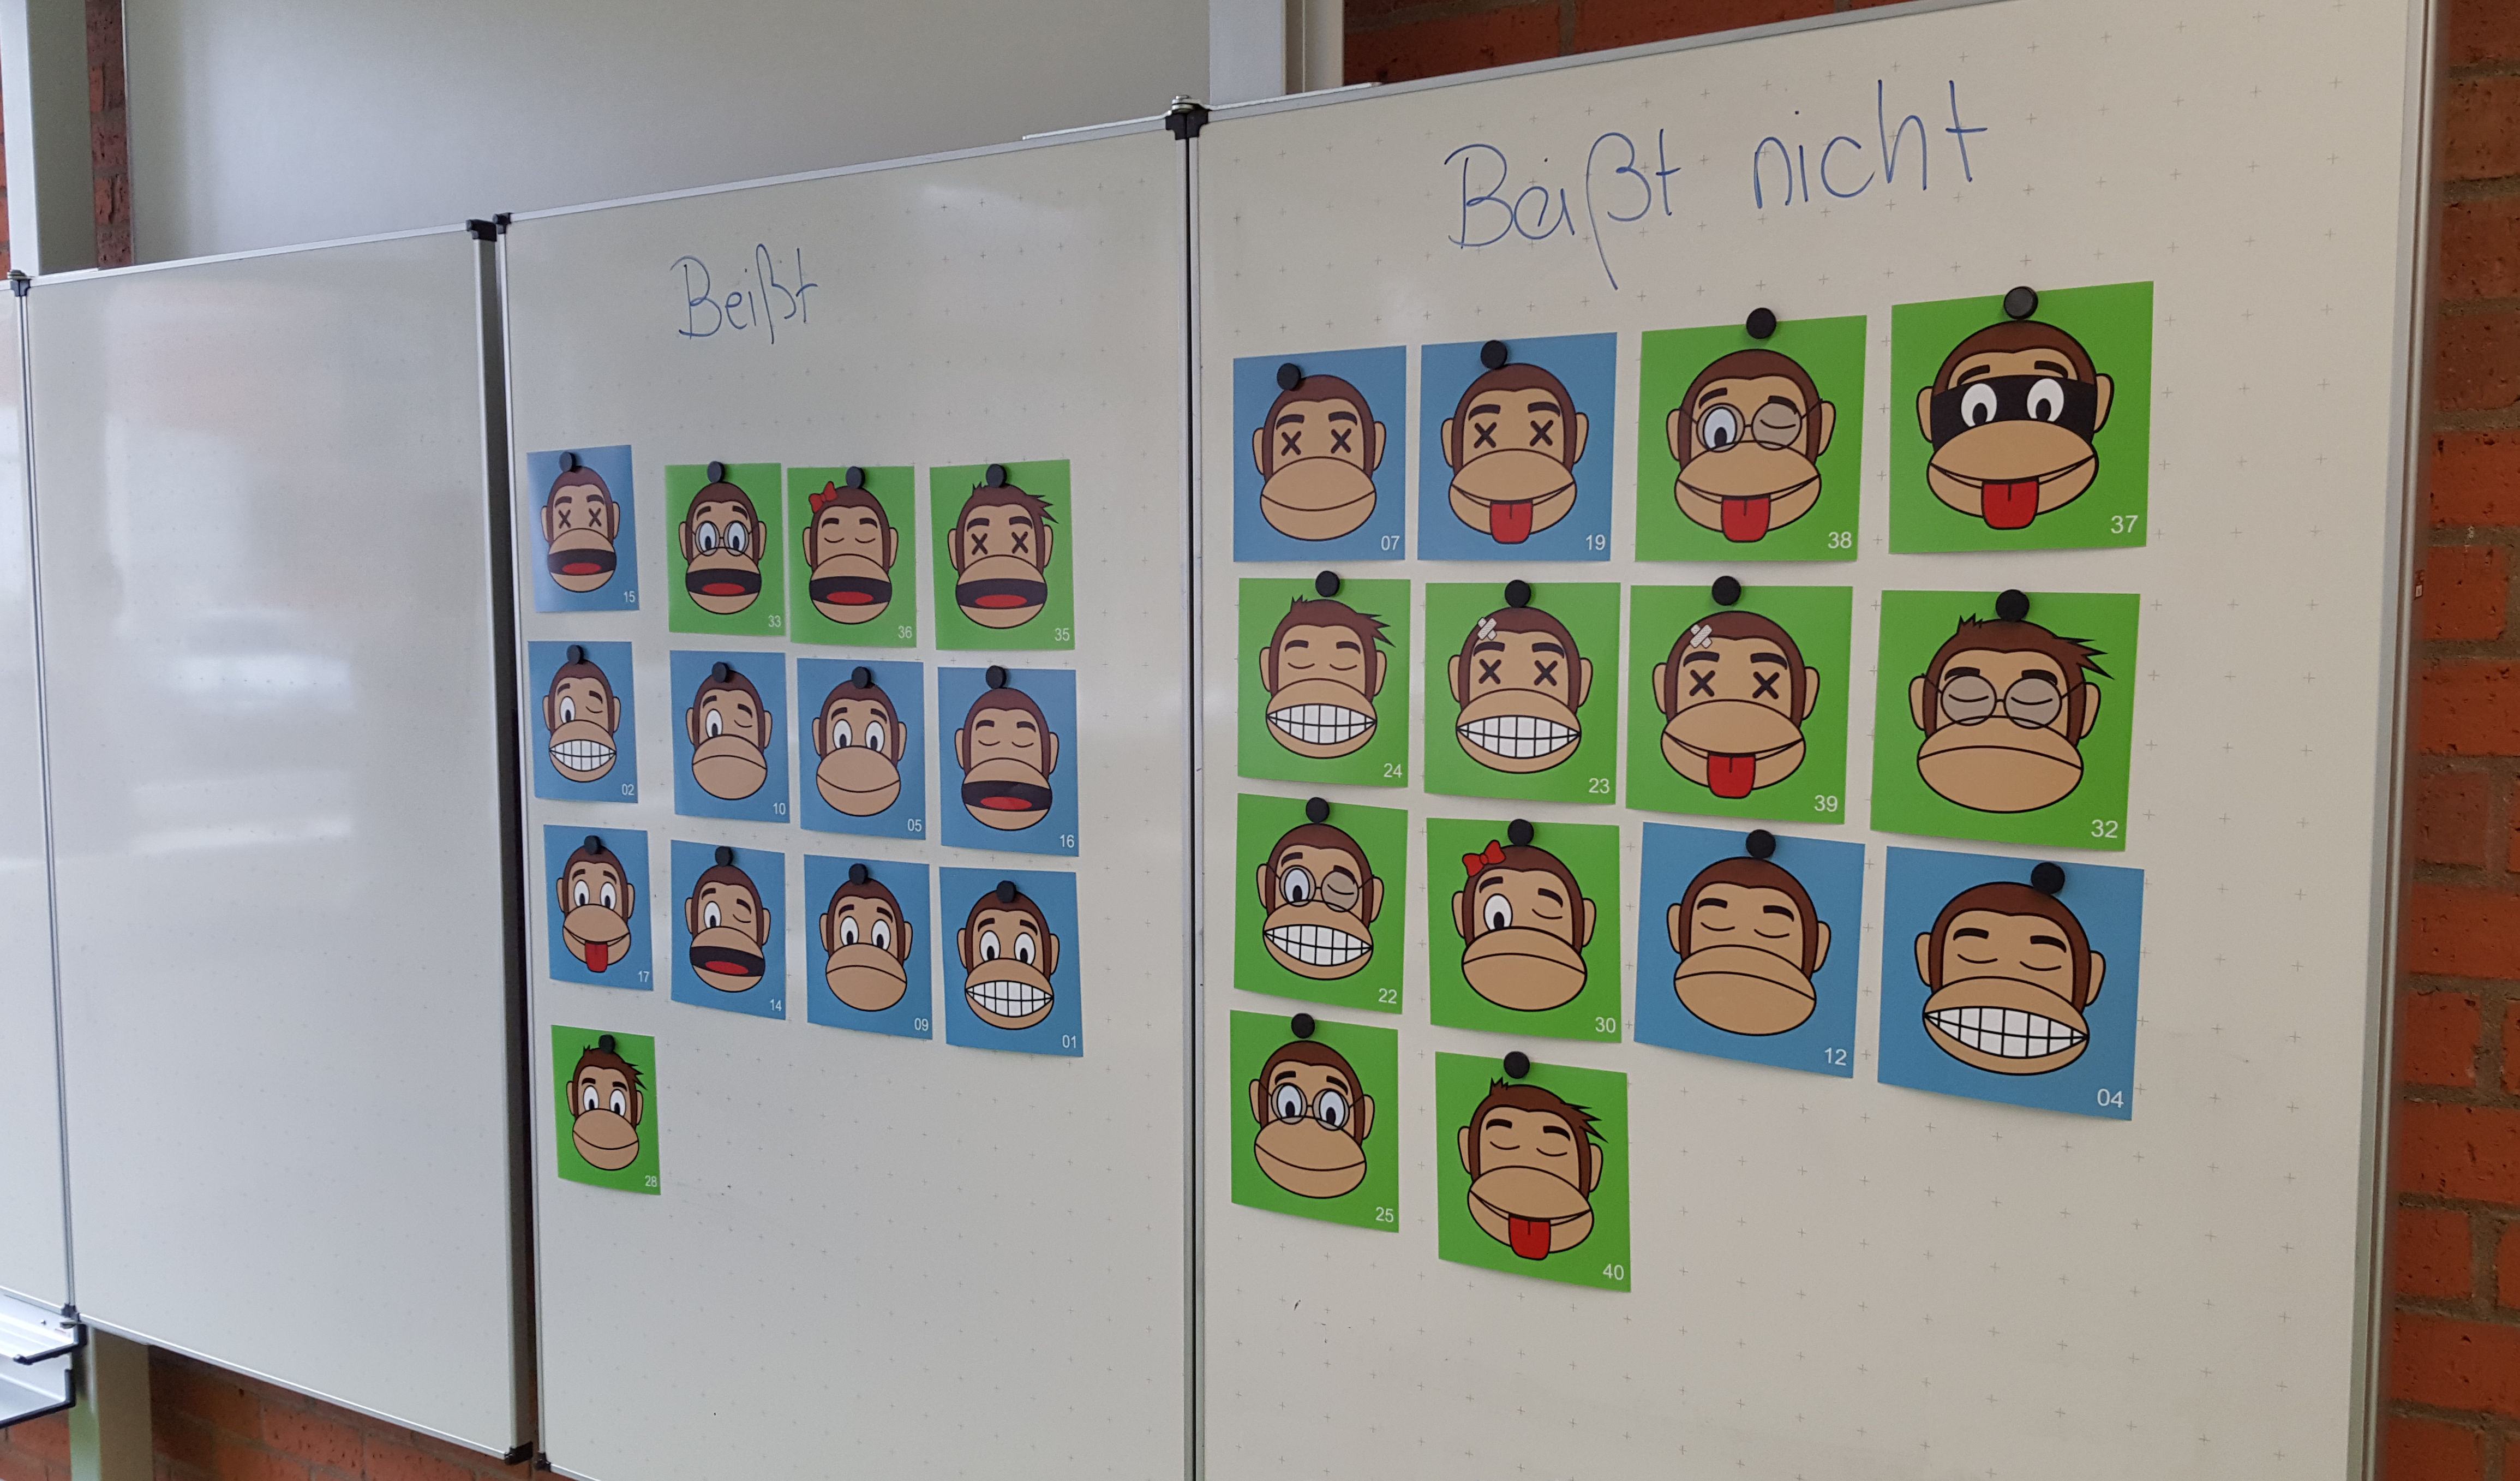 Beißt
15
33
36
35
02
10
05
16
17
14
09
01
28
Beißt nicht
07
19
38
37
24
23
39
32
22
30
12
04
25
40